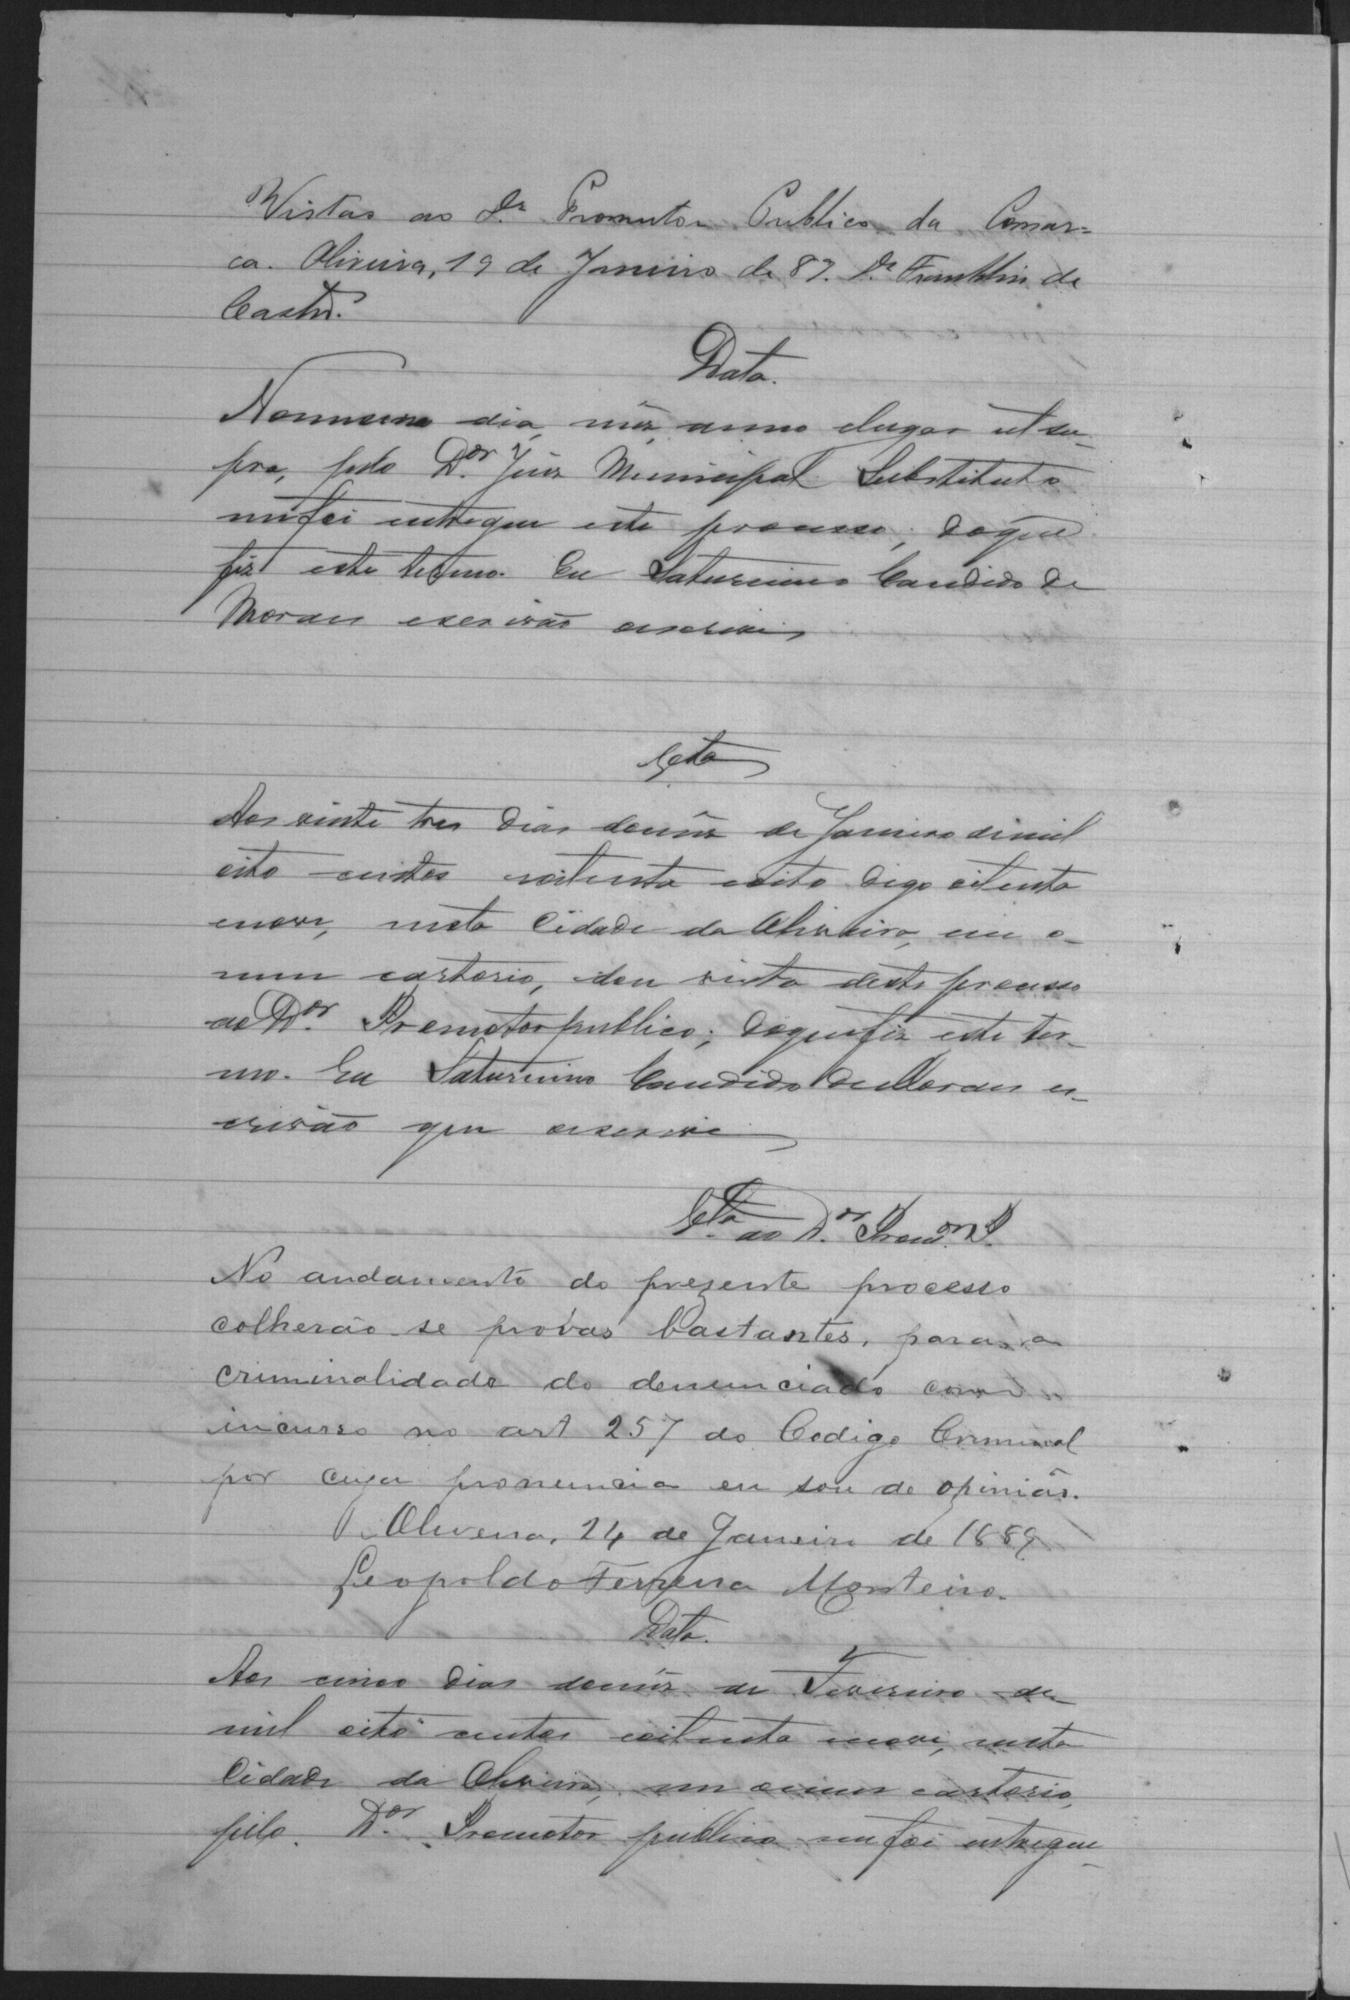 Vistas ao Dr. Promotor Publico da Comar=
ca. Oliveira, 19 de Janeiro de 89. Dr. Franklin de
Castro.
Data.
Nomesmo dia, mez, anno elugar ut su-
pra, pelo Dor. Juiz Municipal Substituto
mefoi entregue este processo; doque
fiz este termo. Eu Saturnino Candido de
Moraes escrivão oescrevi
Vta
Aos vinte tres dias domez de Janeiro demil
oito centos eoitenta eoito digo oitenta
enove, nesta Cidade da Oliveira, em o
meu cartorio, dou vista deste processo
ao Dor. Promotor publico; doquefiz este ter-
mo. Eu Saturnino Candido de Moraes es-
crivão que oescrevi
Vta ao Dor. Promor. P.
No andamento do prezente processo
colherão-se provas bastantes, para a
criminalidade do denunciado como
incurso no art 257 do Codigo Criminal
por cuja pronuncia eu sou de opinião.
Oliveira, 24 de Janeiro de 1889
Leopoldo Ferreira Monteiro.
Data.
Aos cinco dias domez de Fevereiro de
mil oito centos eoitenta enove, nesta
Cidade da Oliveira, em omeu cartorio,
pelo Dor. Promotor publico mefoi entregue